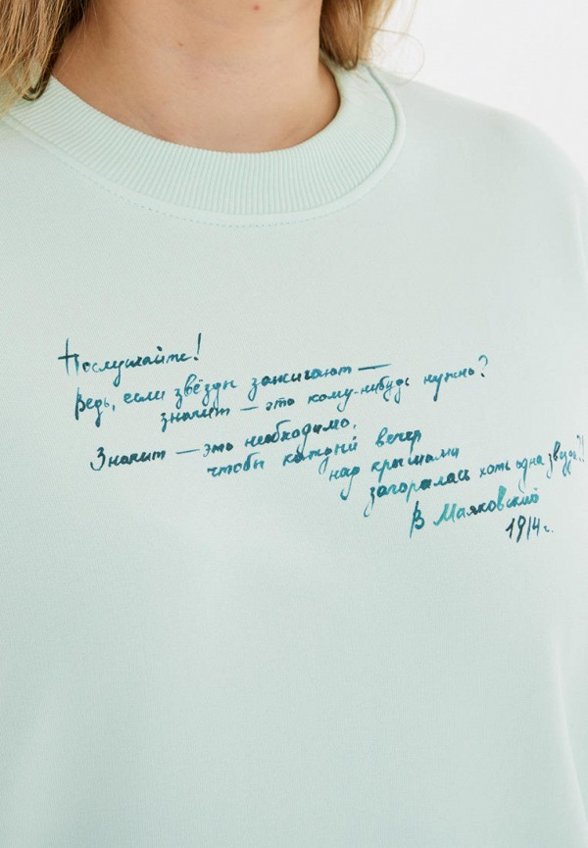 Послушайте!
Ведь, если звёзды зажигают —
значит — это кому-нибудь нужно?
Значит — это необходимо,
чтобы каждый вечер
над крышами
загоралась хоть одна звезда?!
В Маяковский
1914 г.